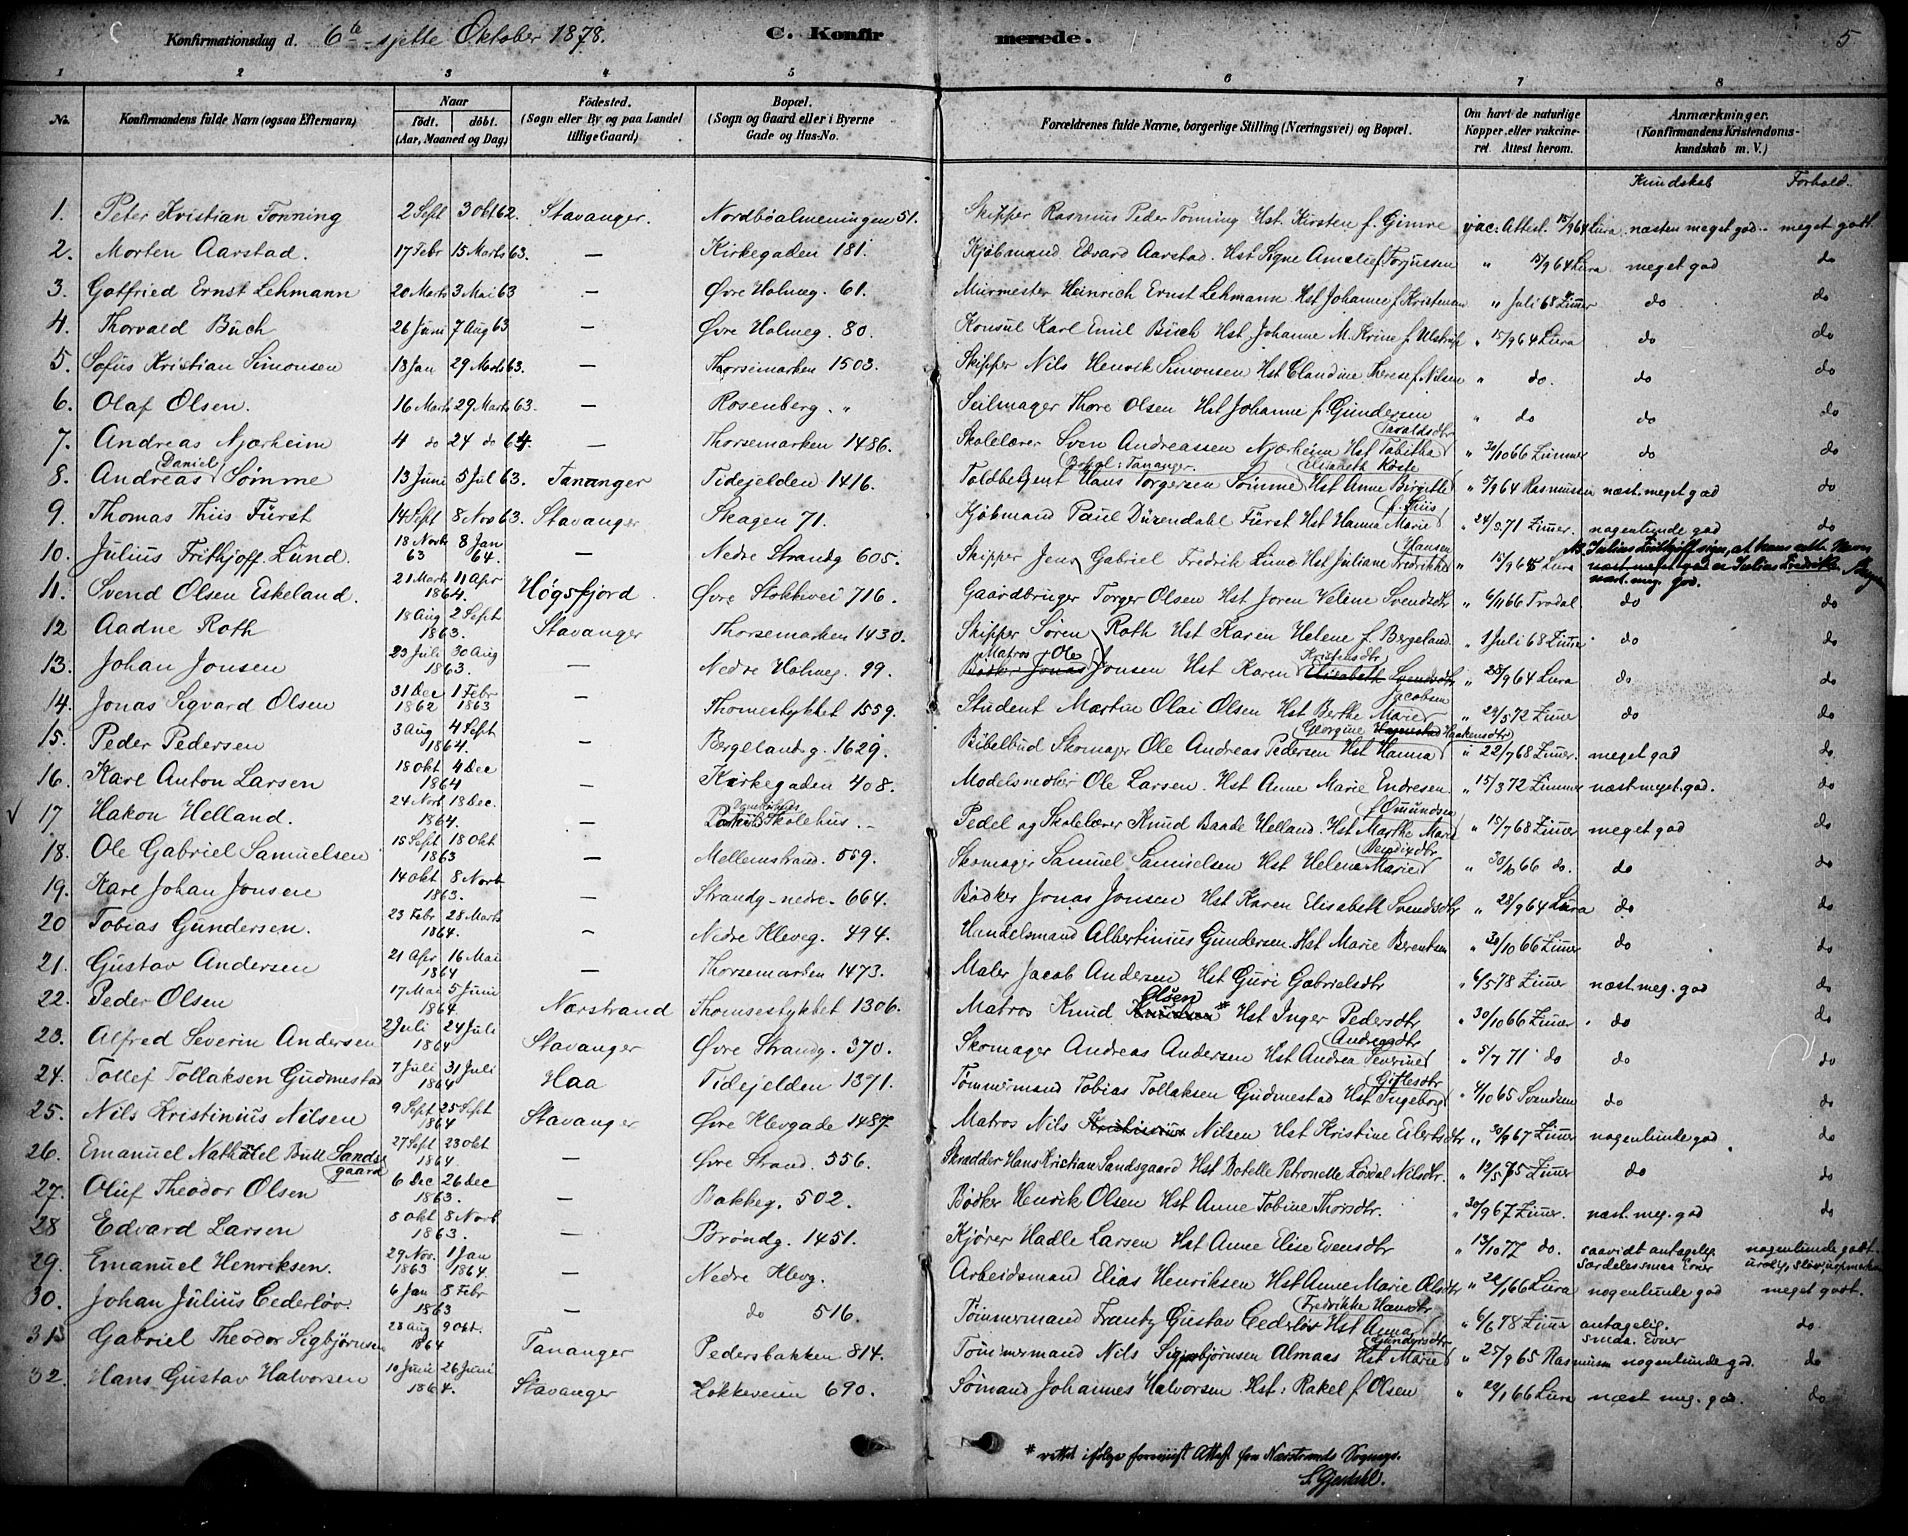 Konfirmationsdag d. 6te sjette Oktober 1878. C. Konfirmerede. 5
1 2 3 4 5 6 7 8
No. Konfirmandens fulde Navn (ogsaa Efternavn) Naar födt. döbt. (Aar, Maaned og Dag) Födested. (Sogn eller By, og paa Landet tillige Gaard) Bopæl. (Sogn og Gaard eller i Byerne Gade og Hus-No. Forældrenes fulde Navne, borgerlige Stilling (Næringsvei) og Bopæl. Om havt de naturlige Kopper, eller vakcineret. Attest herom. Anmærkninger. (Konfirmandens Kristendomskundskab m. V.)
Kundskab Forhold.
1. Peter Kristian Tonning 2 Sept 3 Okt 62. Stavanger. Nordbøalmeningen 51. Skipper Rasmus Peder Tonning Hst. Kirsten f. Gimre vac. Attest. 15/9 64 Lura næsten meget god meget godt
2. Morten Aarstad. 17 Febr 15 Marts 63. — Kirkegaden 181. Kjøbmand Edvard Aarstad. Hst Signe Amalie Torjusen " 15/9 64 Lura meget god do
3. Gotfried Ernst Lehmann 20 Marts 3 Mai 63 — Øvre Holmeg. 61. Murmester Heinrich Ernst Lehmann Hst Johanne f. " Juli 68 Zimer do do
4. Thorvald Buch 26 Juni 7 Aug 63 — Øvre Holmeg. 80. Konsul Karl Emil Buch Hst Johanne M. Krine f Ulstrup " 15/9 64 Lura do do
5. Sofus Kristian Simonsen 18 Jan 29 Marts 63. — Thorsemarken 1503. Skipper Nils Henrik Simonsen Hst Claudine Therese f. Nilsen " do. do do
6. Olaf Olsen. 16 Marts 29 Marts 63. — Rosenberg. " Seilmager Thore Olsen Hst Johanne f. Gundersen " do do do
7. Andreas Njærheim 4 do 24 do 64. — Thorsemarken 1486. Skolelærer Sven Andreassen Njærheim Hst Tabitha Taraldsdtr " 30/10 66 Zimmer do do
8. Andreas Daniel Sømme 13 Juni 5 Jul 63. Tananger Tidejelden 1416. Toldbetjent Hans Torgersen Sømme Bopæl: Tananger. Hst Anne Birgitte Elisabeth " 3/9 64 Rasmussen næst. meget god do
9. Thomas Thiis Fürst 14 Sept 8 Nov 63. Stavanger Skagen 71. Kjøbmand Paul Dürendahl Fürst Hst Hanna Marie f. Thiis " 24/5 71 Zimer. nogenlunde god do
10. Julius Frithjoff Lund. 18 Novb 63 8 Jan 64. — Nedre Strandg 605. Skipper Jens Gabriel Fredrik Lund Hst Juliane Fredrikke Hansen " 15/9 65 Lura næst. meg. god.
11. Svend Olsen Eskeland. 21 Marts 11 Apr 1864. Högsfjord Øvre Stokkevei 716. Gaardbruger Torger Olsen Hst Joren Veline Svendsdtr " 6/11 66 Trodal do do
12 Aadne Roth 18 Aug 2 Sept 1863. Stavanger Thorsemarken 1430. Skipper Sören Roth Hst Karen Helene f. Bergeland. " 1 Juli 68 Zimer do do
13. Johan Jonsen 23 Juli 30 Aug 1863. — Nedre Holmeg. 99. Matros Ole Bødker Jonas Jonsen Hst Karen Kristensdtr Elisabeth Svendsdtr " 28/9 64 Lura do do
14. Jonas Sigvard Olsen 31 Dec 1862 1 Febr 1863 — Thomestykket 1559. Student Martin Olai Olsen Hst Berthe Marie Jacobsen " 29/5 72 Zimer do do
15. Peder Pedersen 3 Aug 4 Sept 1864. — Bergelandg. 1629. Bibelbud Skomager Ole Andreas Pedersen Hst Hanna Georgine Haakensdtr " 22/9 68 Zimer. meget god do.
16. Karl Anton Larsen 18 Okt 4 Dec 1864 — Kirkegaden 408. Modelsnedker Ole Larsen. Hst Anne Marie Endresen " 15/3 72 Zimmer næst. meget. god. do
√ 17 Hakon Helland. 24 Novb 18 Dec. 1864. — Skolehus. — Pedel og Skolelærer Knud Baade Helland. Hst Marthe Marie f Omundsen " 15/7 68 Zimer meget god do
18. Ole Gabriel Samuelsen 15 Sept 18 Okt 1863 — Mellemstrand. 559. Skomager Samuel Samuelsen Hst Helene Marie Bendixdtr " 30/10 66 do. do do
19. Karl Johan Jonsen 14 Okt 8 Novb 1863. — Strandg. nedre. 664. Bødker Jonas Jonsen Hst Karen Elisabeth Svendsdtr " 28/9 64 Lura do do
20 Tobias Gundersen. 23 Febr 28 Marts 1864. — Nedre Kleveg. 494. Handelsmand Albertinius Gundersen. Hst Marie Berentsen " 30/10 66 Zimer do do
21. Gustav Andersen 21 Apr 16 Mai 1864 — Thorsemarden 1473. Maler Jacob Andersen Hst Guri Gabrielsdtr " 6/5 78 Zimer næst. meg. god do
22. Peder Olsen 17 Mai 5 Juni 1864 Narstrand Thomsestykket 1306. Matros Knud Olsen Knudsen * Hst Inger Pedersdtr " 30/10 66 Zimer. do do
23. Alfred Severin Andersen 2 Juli 24 Juli 1864 Stavanger Øvre Strandg. 370. Skomager Andreas Andersen Hst Andrea Severine Andreasdtr " 5/7 71 do do do
24. Tollef Tollaksen Gudmestad 7 Juli 31 Juli 1864 Haa Tidejelden 1371. Tømmermand Tobias Tollaksen Gudmestad Hst Ingeborg Giflesdtr " 4/10 65 Svendsen do do
25. Nils Kristinius Nilsen 9 Sept 25 Sept 1864 Stavanger Øvre Klevgade 1487. Matros Nils Kristinius Nilsen Hst Kristine Eilertsdtr " 30/9 67 Zimer nogenlunde god do
26. Emanuel Nathaael Bull Sandsgaard 27 Sept 23 Okt 1864. — Øvre Strand. 556. Skrædder Hans Kristian Sandsgaard Hst Botelle Petronelle Lördal Nilsdtr. " 12/5 75 Zimer do do
27. Oluf Theodor Olsen 6 Dec 26 Dec 1863. — Bakkeg. 502. Bødker Henrik Olsen Hst Anne Tobine Thorsdtr. " 30/9 67 Zimer. næst. meg. god do
28 Edvard Larsen 8 Okt 8 Novb 1863. — Brøndg. 1451. Kjører Hadle Larsen Hst Anne Elise Evensdtr " 13/10 77 do. saavidt antagelig. særdeles smaa Evner nogenlunde godt.
29. Emanuel Henriksen. 29 Nov. 1863 1 Jan 1864. — Nedre Klevg. Arbeidsmand Elias Henriksen Hst Anne Marie Olsdtr " 66 Lura nogenlunde god meget godt.
30. Johan Julius Cederlöv. 6 Jan 8 Febr 1863 — do 516. Tømmermand Frantz Gustav Cederlöv Hst Anna Fredrikke Hansdtr " 6/6 78 Zimer antagelig. smaa Evner do.
31 Gabriel Theodor Sigbjørnsen 28 Aug 9 Okt. 1864 Tananger Pedersbakken 814. Tømmermand Nils Sigbjørnsen Almaas Hst Marie Gundersdtr " 25/9 65 Rasmussen nogenlunde god. do
32. Hans Gustav Halvorsen 10 Juni 26 Juni 1864. Stavanger Løkkeveien 690. Sømand Johannes Halvorsen. Hst: Rakel f. Olsen " 29/1 66 Lura næst meg. god. do
* rettet ifølge forevist Attest fra Nærstrands Sogness.
S. Gjerdahl.